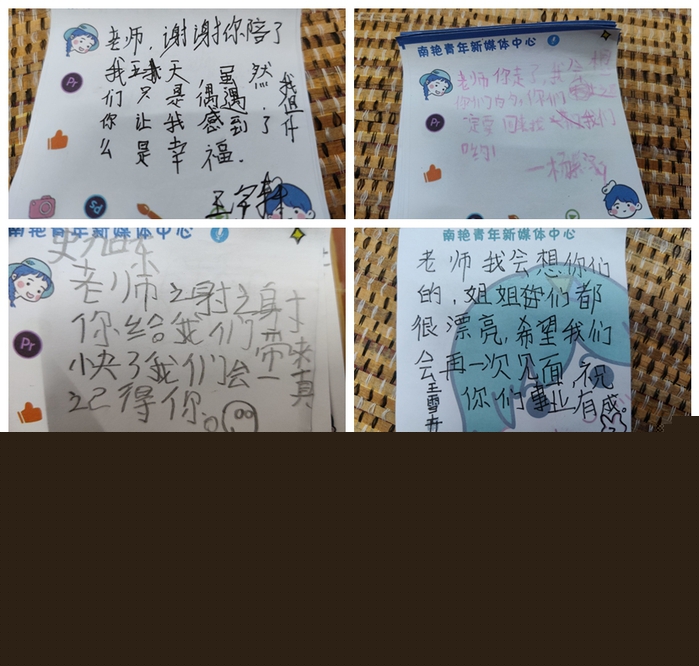 老师,谢谢你陪了
我五天 虽 然 我
们 只 是 偶遇,但
你 让 我 感 到 了 什
么 是 幸 福.
王宇轩
Pr
南艳青年新媒体中心
老师你走了,我会想
你们的,你们
一定要回来找我们
哟!
Pr
南艳青年新媒体中心
老师谢谢
你给我们带来
快了我们会一真
记得你。
Pr
南艳青年新媒体中心
老师我会想你们
的,姐姐你们都
很漂亮,希望我们
会再一次见面,祝
你们事业有成。